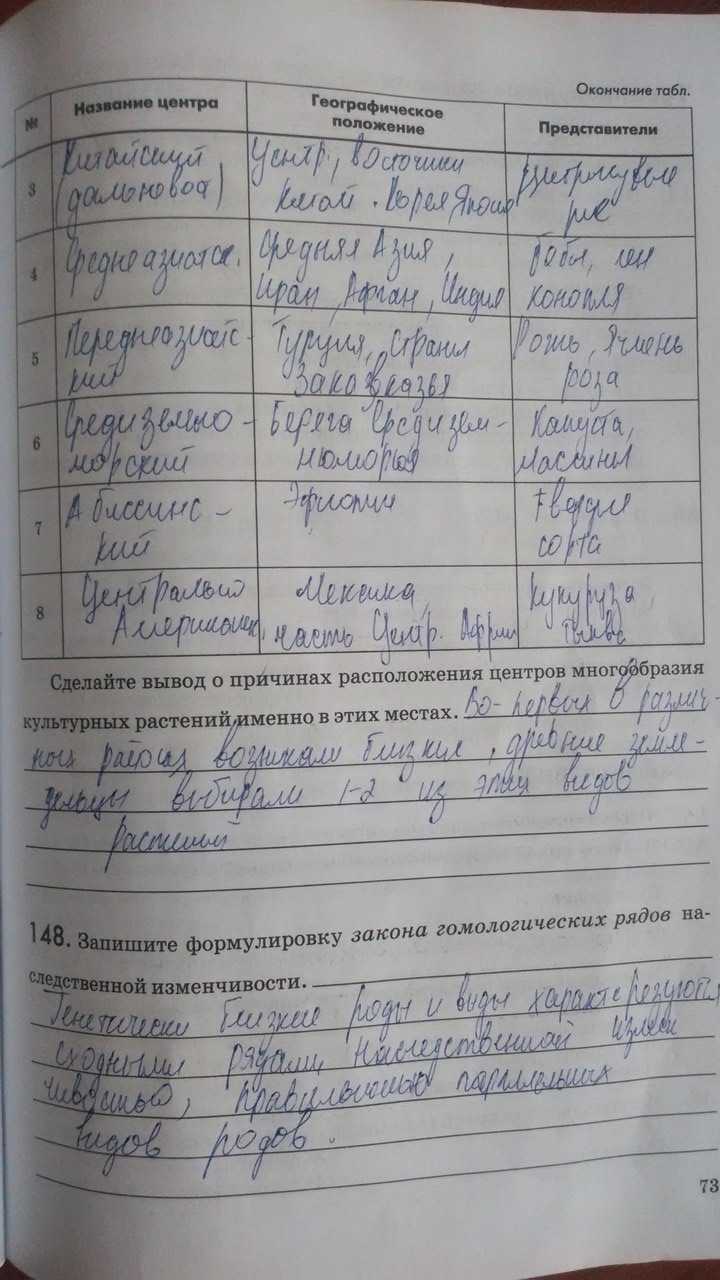 Окончание табл.
№ Название центра Географическое положение Представители
3 Китайский Центр, восточный
Китай. Корея Япония
4 Среднеазиатск. Средняя Азия, лен
Иран, Афган, Индия конопля
5 Переднеазиатс- Турция, страны Рожь, Ячмень
кий Закавказья роза
6 Средиземно- Берега Средизем- Капуста,
морский номорья маслины
7 Абиссинс- Эфиопия Твердые
кий сорта
8 Центрально Мексика, Кукуруза,
Американск. часть Центр. тыква
Сделайте вывод о причинах расположения центров многообразия
культурных растений именно в этих местах. Во-первых в различ-
ных возникали близкие, древние земле-
дельцы выбирали 1-2 из этих видов
растений
148. Запишите формулировку закона гомологических рядов на-
следственной изменчивости.
Генетически близкие роды и виды характеризуются
сходными рядами наследственной измен
чивостью, правильностью параллельных
видов родов.
73